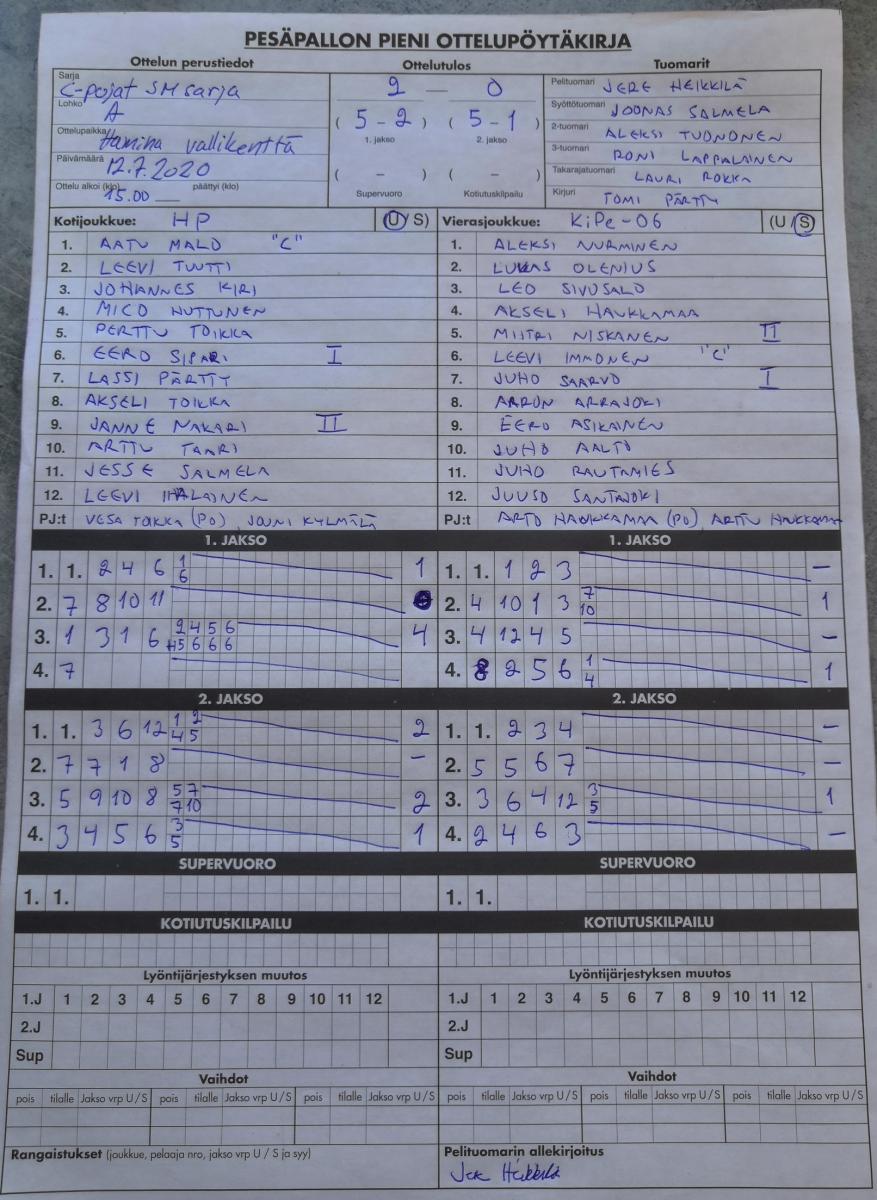 PESÄPALLON PIENI OTTELUPÖYTÄKIRJA
Ottelun perustiedot
Ottelutulos
Tuomarit
Sarja C-pojat SMsarja
Lohko A
Ottelupaikka Hamina vallikenttä
Päivämäärä 12.7.2020
Ottelu alkoi (klo) 15.00 päättyi (klo)
2 — 0
(5 - 2) (5 - 1)
1. jakso 2. jakso
( - ) ( - )
Supervuoro Kotiutuskilpailu
Pelituomari JERE HEIKKILÄ
Syöttötuomari JOONAS SALMELA
2-tuomari ALEKSI TUONONEN
3-tuomari RONI LAPPALAINEN
Takarajatuomari LAURI ROKKA
Kirjuri TOMI PÄRTTY
Kotijoukkue: HP (U/S)
1. AATU MALO "C"
2. LEEVI TUUTTI
3. JOHANNES KIRI
4. MICO HUTTUNEN
5. PERTTU TOIKKA
6. EERO SIPARI I
7. LASSI PÄRTTY
8. AKSELI TOIKKA
9. JANNE NAKARI II
10. ARTTU TAARI
11. JESSE SALMELA
12. LEEVI IHALAINEN
PJ:t VESA TOIKKA (PO), JOUNI KYLMÄLÄ
Vierasjoukkue: KiPe-06 (U/S)
1. ALEKSI NURMINEN
2. LUKAS OLENIUS
3. LEO SIVUSALO
4. AKSELI HAUKKAMAA
5. MIITRI NISKANEN II
6. LEEVI IMMONEN "C"
7. JUHO SAARVO I
8. AARON ARRAJOKI
9. EERO ASIKAINEN
10. JUHO AALTO
11. JUHO RAUTAMIES
12. JUUSO SANTAJOKI
PJ:t ARTO HAUKKAMAA (PO), ARTTU HAUKKAMAA
1. JAKSO
1. 1. 2 4 6 1 6 1
2. 7 8 10 11
3. 1 3 1 6 2 4 5 6 5 6 6 6 4
4. 7
1. JAKSO
1. 1. 1 2 3 –
2. 4 10 1 3 7 10 1
3. 4 12 4 5 –
4. 8 2 5 6 1 4 1
2. JAKSO
1. 1. 3 6 12 1 2 4 5 2
2. 7 7 1 8 –
3. 5 9 10 8 5 7 7 10 2
4. 3 4 5 6 3 5 1
2. JAKSO
1. 1. 2 3 4 –
2. 5 5 6 7 –
3. 3 6 4 12 3 5 1
4. 2 4 6 3 –
SUPERVUORO
1. 1.
SUPERVUORO
1. 1.
KOTIUTUSKILPAILU
KOTIUTUSKILPAILU
Lyöntijärjestyksen muutos
1.J 1 2 3 4 5 6 7 8 9 10 11 12
2.J
Sup
Lyöntijärjestyksen muutos
1.J 1 2 3 4 5 6 7 8 9 10 11 12
2.J
Sup
Vaihdot
pois tilalle Jakso vrp U/S pois tilalle Jakso vrp U/S pois tilalle Jakso vrp U/S
Vaihdot
pois tilalle Jakso vrp U/S pois tilalle Jakso vrp U/S pois tilalle Jakso vrp U/S
Rangaistukset (joukkue, pelaaja nro, jakso vrp U / S ja syy)
Pelituomarin allekirjoitus
Jere Heikkilä